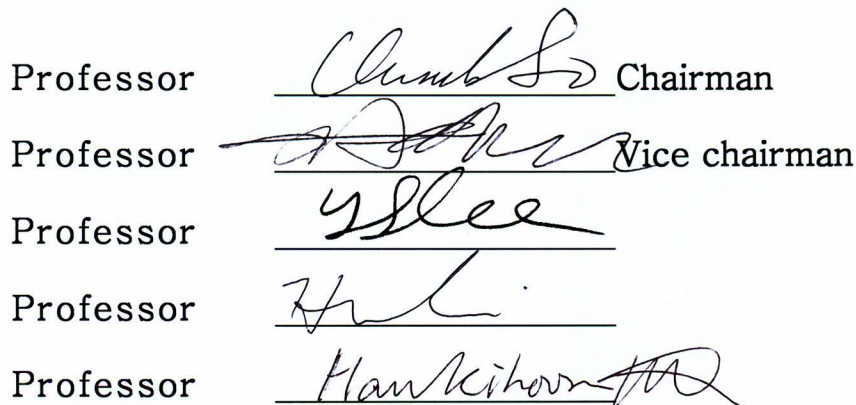 Professor Chairman
Professor Vice chairman
Professor YSLee
Professor
Professor Han Ki hoon